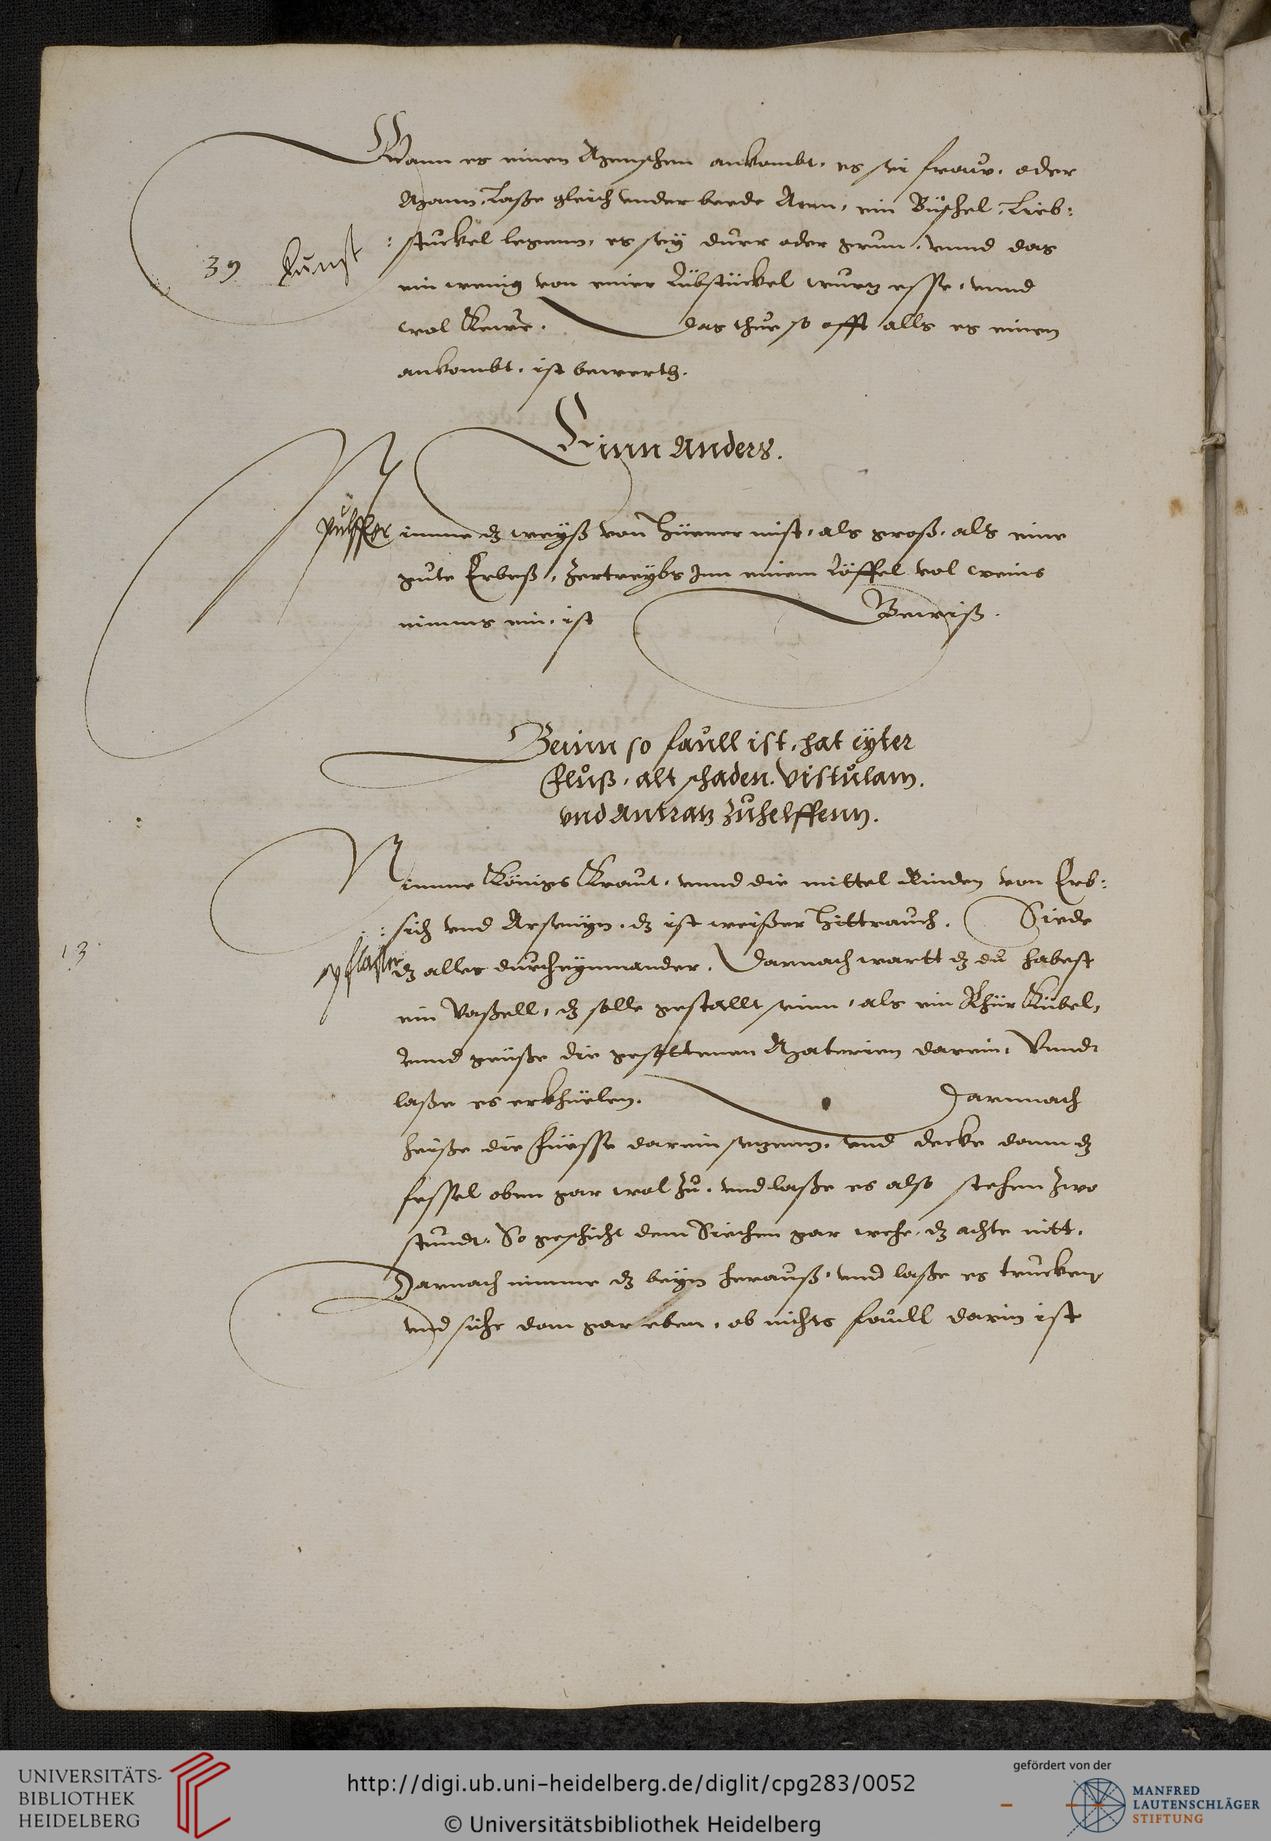 Wann es einen Menschen ankombt, es sei fraw, oder
Mann, Laße gleich vnder beede Arm, ein Büschel, Lieb:
39 kunst
: stuckel legenn, es sey dürr oder grun, vnnd das
ein wenig von einer Lübstückel wurtz esse, vnnd
wol kewe. Das thue so offt alls es einen
ankombt, ist bewerth.
Einn Anders.
Pulffer
Nimme dz weyß von hüener mist, als groß, als eine
gute Erbeß, Zertreybs Inn einem Löffel vol weins
nimms ein, ist Gewiß.
Beinn so faull ist, hat eyter
fluß, alt schaden. Vistulam.
vnd Antratz zuhelffenn.
Nimme Königs Kraut, vnnd die mittel Rinden von Erb:
: sich vnd Arsenign, dz ist weißer hittrauch. Siede
13
pflaster
dz alles durcheynnander. Darnach wartt dz du habest
ein Vaßell, dz solle gestallt seinn, als ein Rhür Kübel,
vnnd geuße die gesottenen Materien darein, Vnnd
laße es erkhüelen. Darnnach
heiße die Füesse darein setzenn, vnd decke dann dz
fessel oben gar wol zu, vnd laße es also stehen zwo
stundt. So geschicht dem Siechen gar wehe, dz achte nitt.
Darnach nimme dz beyn herauß, vnd laße es trucken,
vnd siehe dan gar eben, ob nichts faull darin ist
UNIVERSITÄTS-
BIBLIOTHEK
HEIDELBERG
http://digi.ub.uni-heidelberg.de/diglit/cpg283/0052
© Universitätsbibliothek Heidelberg
gefördert von der
MANFRED
LAUTENSCHLÄGER
STIFTUNG